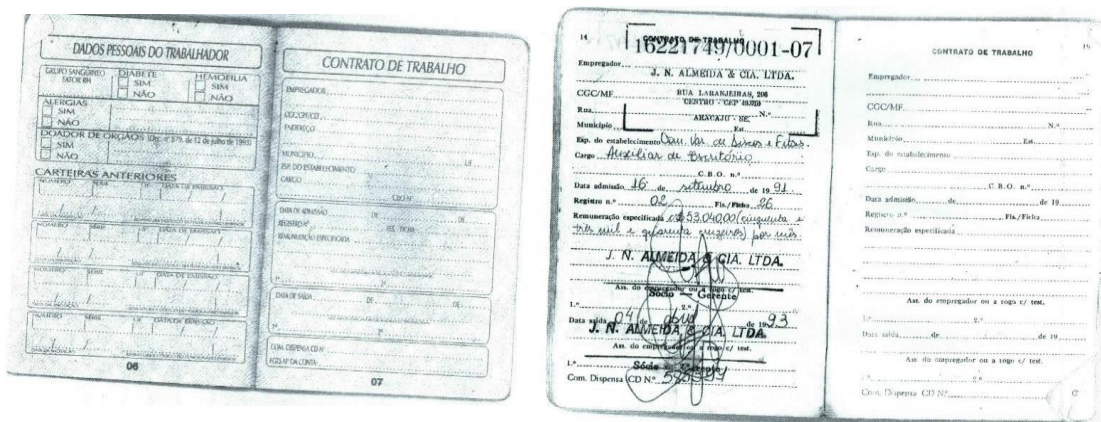 DADOS PESSOAIS DO TRABALHADOR
GRUPO SANGUÍNEO
FATOR RH
DIABETE
SIM
NÃO
HEMOFILIA
SIM
NÃO
ALERGIAS
SIM
NÃO
DOADOR DE ÓRGÃOS (Dec. nº 879, de 12 de julho de 1993)
SIM
NÃO
CARTEIRAS ANTERIORES
NÚMERO SÉRIE UF DATA DE EMISSÃO
NÚMERO SÉRIE UF DATA DE EMISSÃO
NÚMERO SÉRIE UF DATA DE EMISSÃO
NÚMERO SÉRIE UF DATA DE EMISSÃO
06
CONTRATO DE TRABALHO
EMPREGADOR
CGC/CPF/CEI
ENDEREÇO
MUNICÍPIO UF
ESP. DO ESTABELECIMENTO
CARGO
CBO Nº
DATA DE ADMISSÃO DE DE
REGISTRO Nº FLS. FICHA
REMUNERAÇÃO ESPECIFICADA
2º
DATA DE SAÍDA DE DE
1º 2º
COM. DISPENSA CD Nº
FGTS Nº DA CONTA
07
14 CONTRATO DE TRABALHO
16221749/0001-07
Empregador
J. N. ALMEIDA & CIA. LTDA.
CGC/MF RUA LARANJEIRAS, 206
CENTRO - CEP
Rua N.º
ARACAJU - SE.
Município Est.
Esp. do estabelecimento Com. Var. de Discos e Fitas.
Cargo Auxiliar de Escritório
C.B.O. n.º
Data admissão 16 de setembro de 1991
Registro n.º 02 Fls./Ficha 26
Remuneração especificada cr$53.040,00 (cinquenta e
três mil e quarenta cruzeiros) por mês
J. N. ALMEIDA & CIA. LTDA.
Ass. do empregador ou a rogo c/ test.
Sócio - Gerente
1.º 2.º
Data saída 04 de abril de 1993
J. N. ALMEIDA & CIA. LTDA.
Ass. do empregador ou a rogo c/ test.
Sócio - Gerente
1.º
Com. Dispensa CD Nº
CONTRATO DE TRABALHO 15
Empregador
CGC/MF
Rua N.º
Município Est.
Esp. do estabelecimento
Cargo
C.B.O. n.º
Data admissão de de 19
Registro n.º Fls./Ficha
Remuneração especificada
Ass. do empregador ou a rogo c/ test.
1.º 2.º
Data saída de de 19
Ass. do empregador ou a rogo c/ test.
1.º 2.º
Com. Dispensa CD Nº